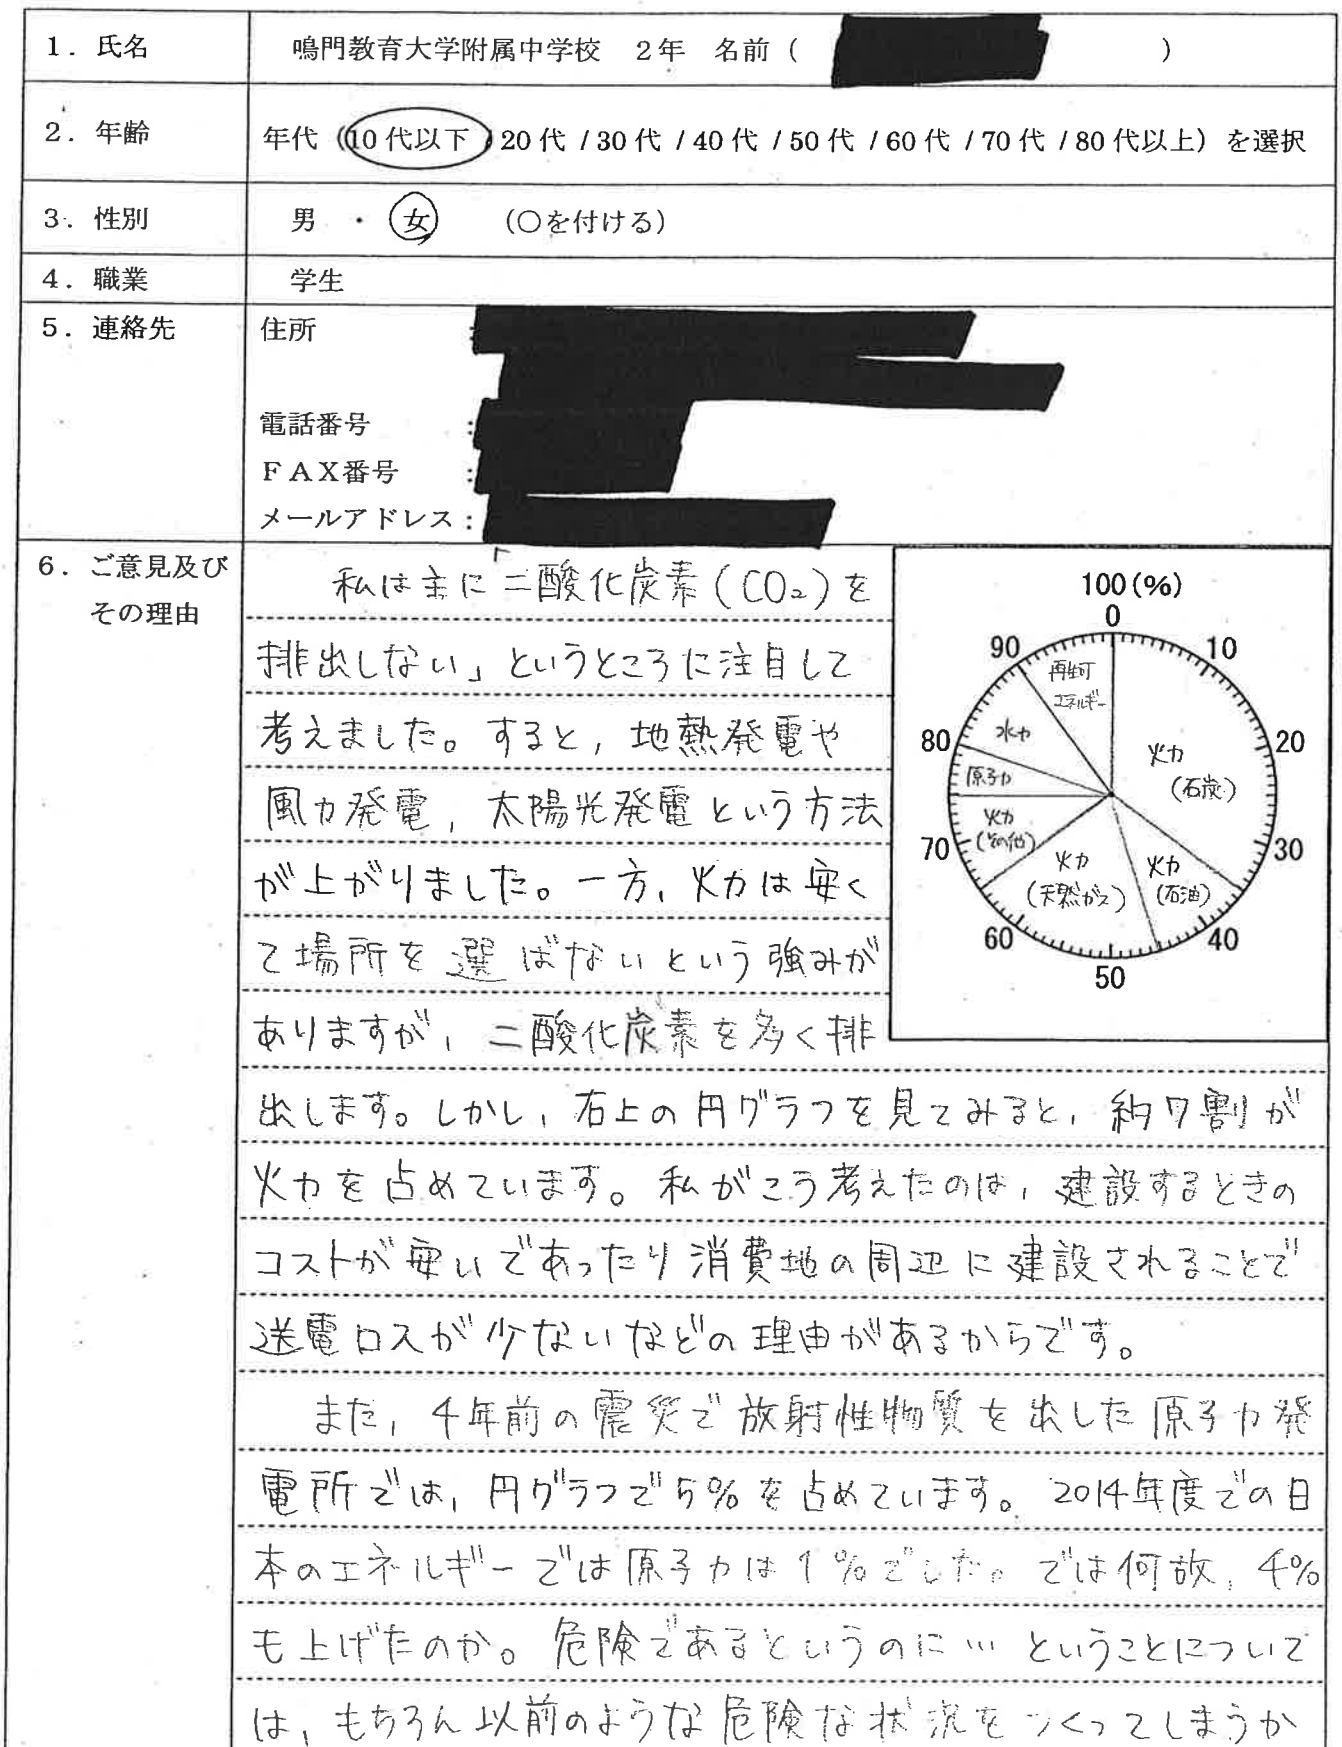 1．氏名
鳴門教育大学附属中学校　2年　名前（　　　　）
2．年齢
年代（10代以下／20代／30代／40代／50代／60代／70代／80代以上）を選択
3．性別
男　・　女　　（○を付ける）
4．職業
学生
5．連絡先
住所　　：
電話番号　　：
ＦＡＸ番号　　：
メールアドレス：
6．ご意見及び
その理由
私は主に「二酸化炭素（CO₂）を
排出しない」というところに注目して
考えました。すると，地熱発電や
風力発電，太陽光発電という方法
が上がりました。一方，火力は安く
て場所を選ばないという強みが
ありますが，二酸化炭素を多く排
出します。しかし，右上の円グラフを見てみると，約7割が
火力を占めています。私がこう考えたのは，建設するときの
コストが安いであったり消費地の周辺に建設されることで
送電ロスが少ないなどの理由があるからです。
また，4年前の震災で放射性物質を出した原子力発
電所では，円グラフで5%を占めています。2014年度での日
本のエネルギーでは原子力は1%でした。では何故，4%
も上げたのか。危険であるというのに…ということについて
は，もちろん以前のような危険な状況をつくってしまうか
100(%)
0
10
20
30
40
50
60
70
80
90
再生可
エネルギー
水力
原子力
火力
(その他)
火力
(天然ガス)
火力
(石油)
火力
(石炭)